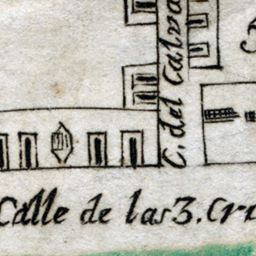 C. del Calva
Calle de las 3. Cru